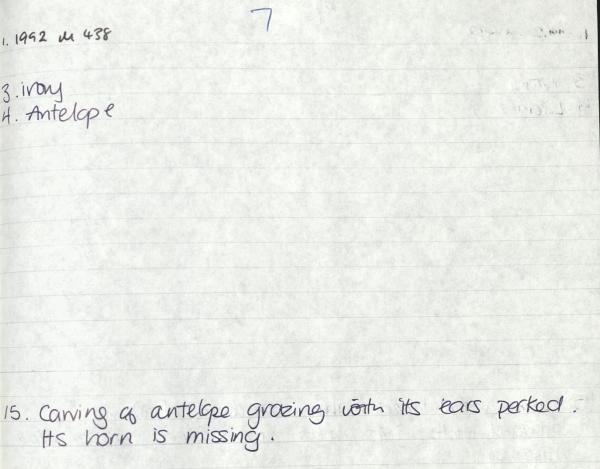 7
1. 1992 M 438
3. ivory
4. Antelope
15. Carving of antelope grazing with its ears perked.
Its horn is missing.